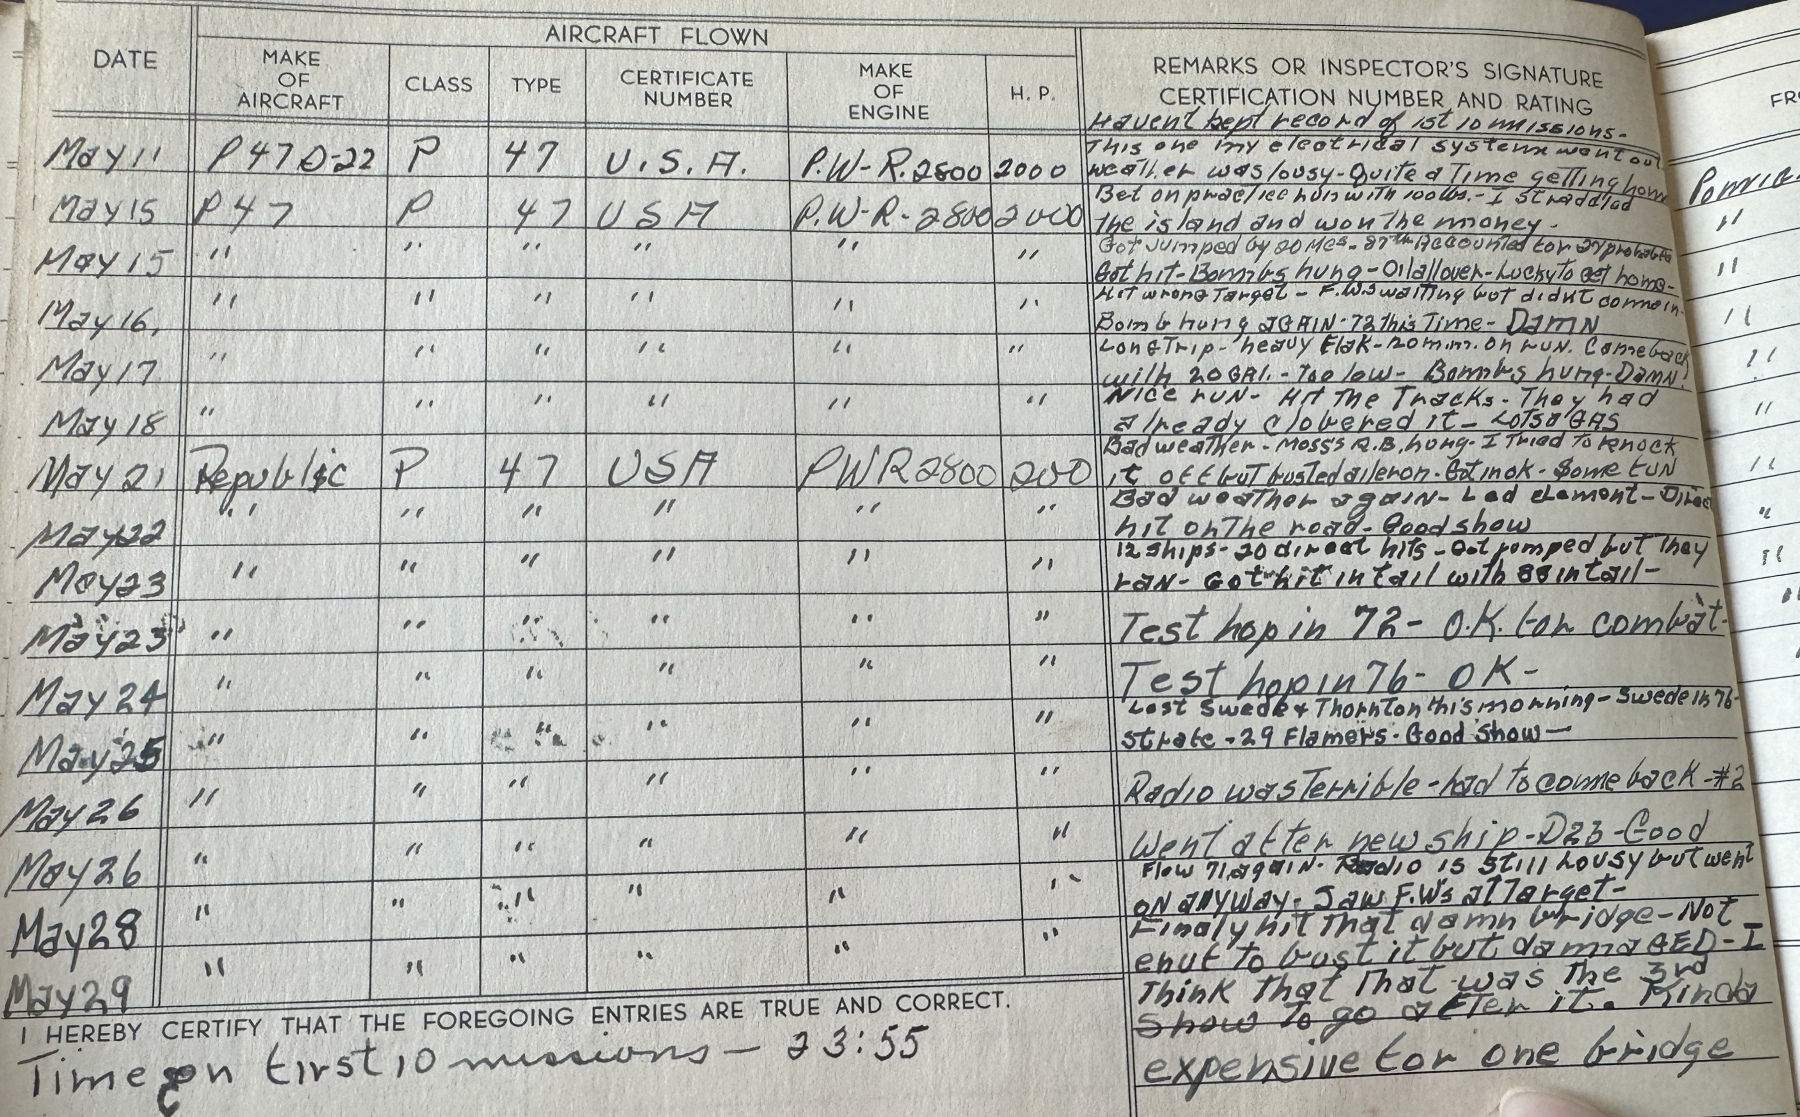 AIRCRAFT FLOWN
DATE MAKE OF AIRCRAFT CLASS TYPE CERTIFICATE NUMBER MAKE OF ENGINE H. P. REMARKS OR INSPECTOR'S SIGNATURE CERTIFICATION NUMBER AND RATING
Havent kept record of 1st 10 missions-
May 11 P47D-22 P 47 U.S.A. P.W-R.2800 2000 This one my electrical system went out
weather was lousy-Quite a Time getting home
May 15 P47 P 47 USA P.W-R-2800 2000 Bet on practice run with 100lbs.-I straddled
the island and won the money-
May 15 " " " " " " Got jumped by 20 Mes- 87th Accounted for 2 probables
Got hit-Bombs hung-Oil all over-Lucky to get home-
May 16, " " " " " " Hit wrong Target - F.W.s waiting but didnt come in-
Bomb hung AGAIN-72 this Time- DAMN
May 17 " " " " " " Long Trip- heavy Flak-20 m.m. on run. Came back
with 20 GAl.-Too low- Bombs hung-DAMN!
May 18 " " " " " " Nice run- Hit The Tracks- They had
already clobered it- Lotsa GAS
May 21 Republic P 47 USA PWR2800 200 Bad weather-Moss's R.B. hung- I Tried to knock
it off but busted aileron-Got in ok-Some fun
May 22 " " " " " " Bad weather again-Led element-Direct
hit on The road-Good show
May 23 " " " " " " 12 ships-20 direct hits-Got jumped but They
ran- Got hit in tail with 88 in tail-
May 23 " " " " " " Test hop in 72- O.K. for combat-
May 24 " " " " " " Test hop in 76- OK-
May 25 " " " " " " Lost Swede + Thornton this morning-Swede in 76-
strafe-29 Flamers-Good Show-
May 26 " " " " " " Radio was Terrible-had to come back-#2
May 26 " " " " " " Went after new ship-D23-Good
May 28 " " " " " " Flew 71, again- Radio is still lousy but went
on anyway- Saw F.W's at Target-
May 29 " " " " " " Finaly hit That damn bridge-Not
enuf To bust it but damaGED-I
Think That That was The 3rd
show To go after it. Kinda
expensive for one bridge
I HEREBY CERTIFY THAT THE FOREGOING ENTRIES ARE TRUE AND CORRECT.
Time on first 10 missions- 23:55
FR
"
"
"
"
"
"
"
"